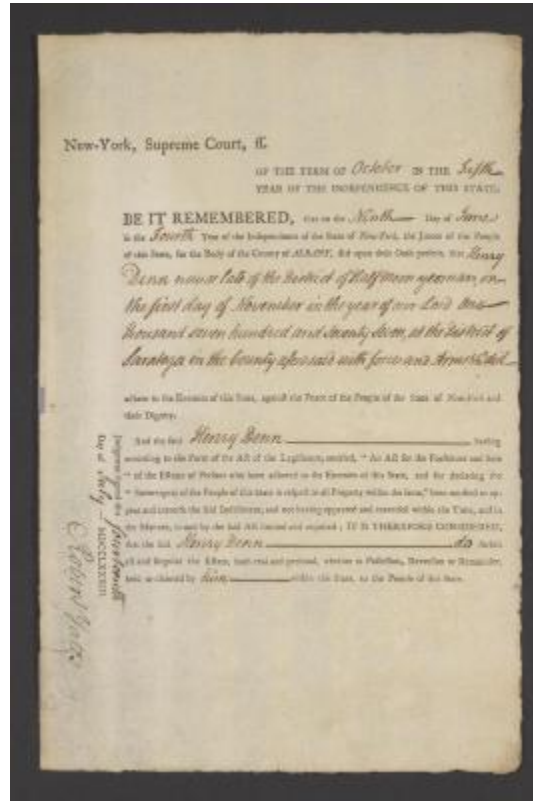 New-York, Supreme Court, ſſ.
OF THE TERM OF October IN THE Fifth
YEAR OF THE INDEPENDENCE OF THIS STATE.
BE IT REMEMBERED, that on the Ninth Day of June
in the Fourth Year of the Independence of the State of New-York, the Jurors of the People
of this State, for the Body of the County of ALBANY, did upon their Oath present, that Henry
Denn now or late of the District of Halfmoon yeoman, on
the first day of November in the year of our Lord One
thousand seven hundred and seventy seven, at the District of
Saratoga in the County aforesaid with force and Arms &c did
adhere to the Enemies of this State, against the Peace of the People of the State of New-York and
their Dignity.
And the said Henry Denn having
according to the Form of the Act of the Legislature, entitled, “An Act for the Forfeiture and Sale
“of the Estates of Persons who have adhered to the Enemies of this State, and for declaring the
“Sovereignty of the People of this State in respect to all Property within the same,” been notified to ap-
pear and traverse the said Indictment, and not having appeared and traversed within the Time, and in
the Manner, in and by the said Act limited and required; IT IS THEREFORE CONSIDERED,
that the said Henry Denn do forfeit
all and singular the Estate, both real and personal, whether in Possession, Reversion or Remainder,
held or claimed by him within this State, to the People of this State.
Judgment signed this
Day of July MDCCLXXXIII
Robert Yates